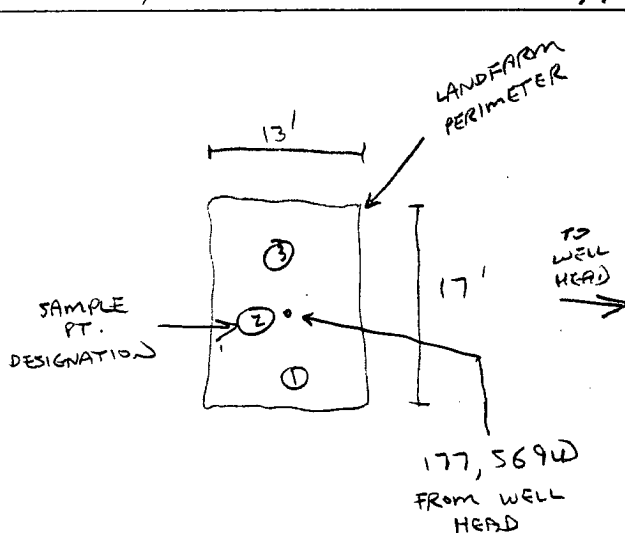 LANDFARM
PERIMETER
13'
3
17'
TO
WELL
HEAD
SAMPLE
PT.
DESIGNATION
2
1
177, S69W
FROM WELL
HEAD